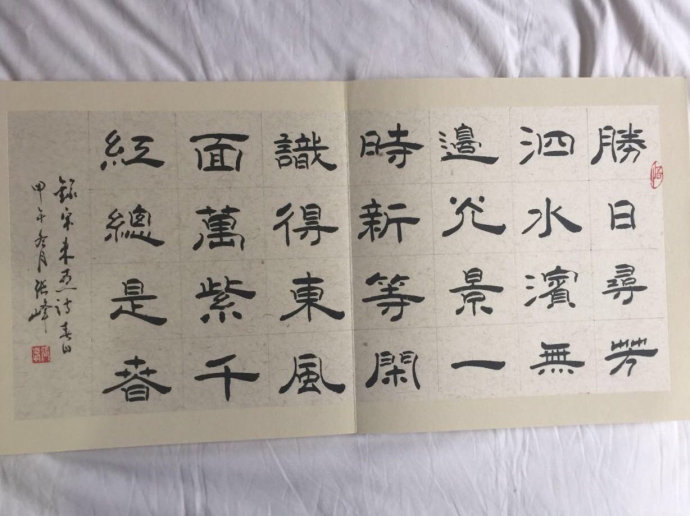 勝日尋芳
泗水濱無
邊光景一
時新等閑
識得東風
面萬紫千
紅總是春
錄宋朱熹詩春日
甲午冬月張峰